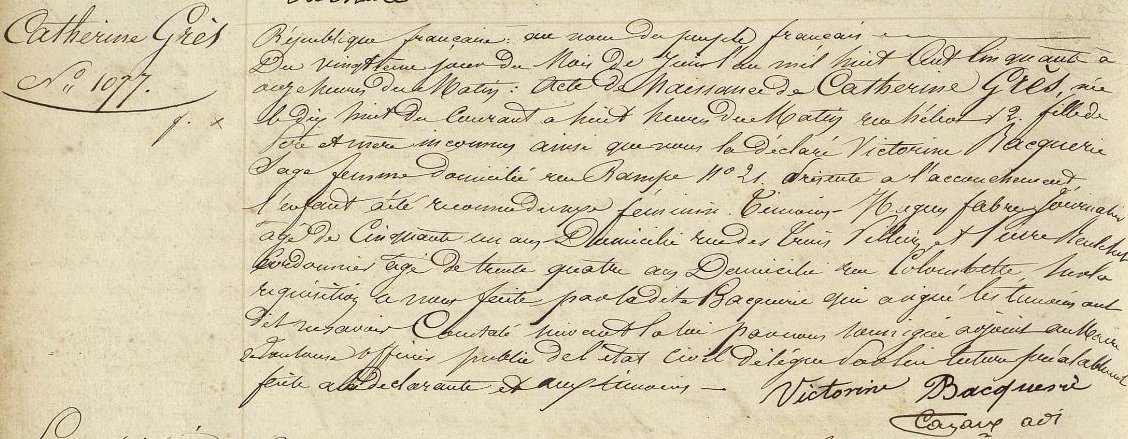 Catherine Grès
N° 1097.
République française : au nom du peuple français
Du vingtième jour du Mois de Juin l'an mil huit Cent Cinquante à
onze heures du Matin : Acte de Naissance de Catherine Grès, née
le dix huit du Courant a huit heures du Matin rue hélios 12. fille de
Père et mère inconnus ainsi que nous la déclaré Victorine Bacquerie
Sage femme domicilié rue Rampe N° 21 présente a l'accouchement
l'enfant a été reconnu du sexe féminin. Témoins fabre Journalier
agé de Cinquante un ans Domicilié rue des trois et Pierre
Cordonnier agé de trente quatre ans Domicilié rue Colombette Sur la
requisition a nous feite par la dite Bacquerie qui a signé les temoins ont
dit ne savoir Constaté suivant la loi par nous soussigné adjoint au Maire
de Toulouse officier public de l'état civil délégué lecture préalablement
feite a la déclarante et aux témoins
Victorine Bacquerie
adj